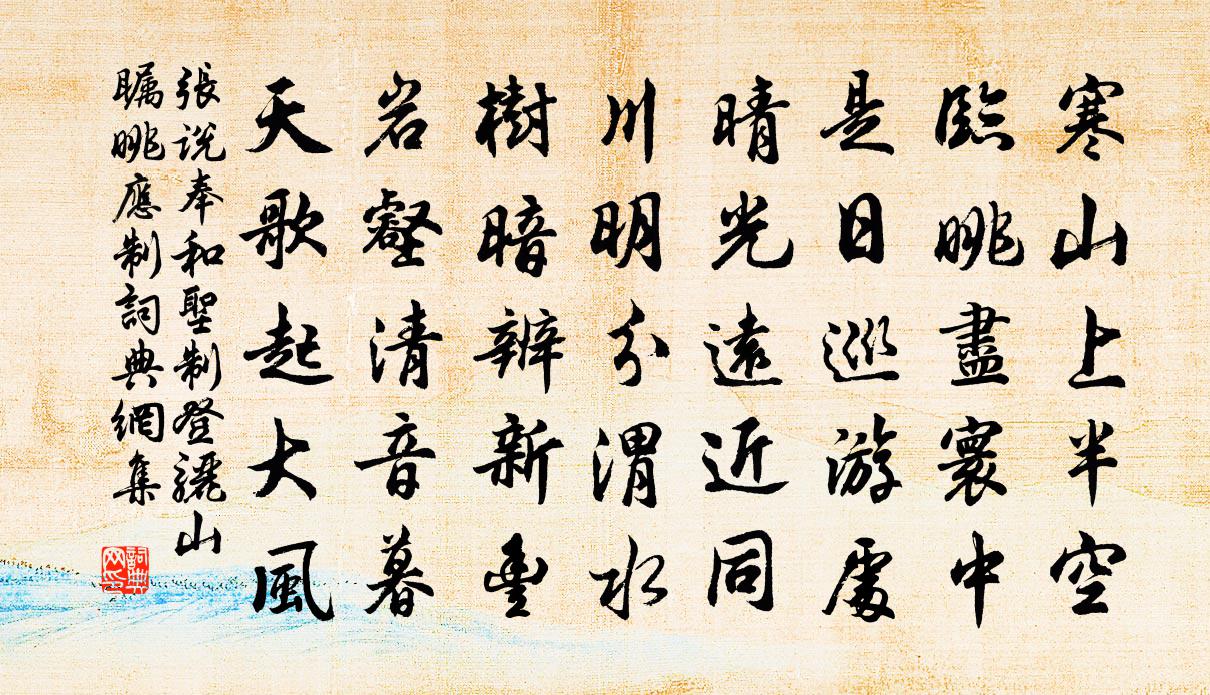 寒山上半空
臨眺盡寰中
是日巡游處
晴光遠近同
川明分渭水
樹暗辨新豐
岩壑清音暮
天歌起大風
張說奉和聖制登驪山
矚眺應制詞典網集
詞典
网印